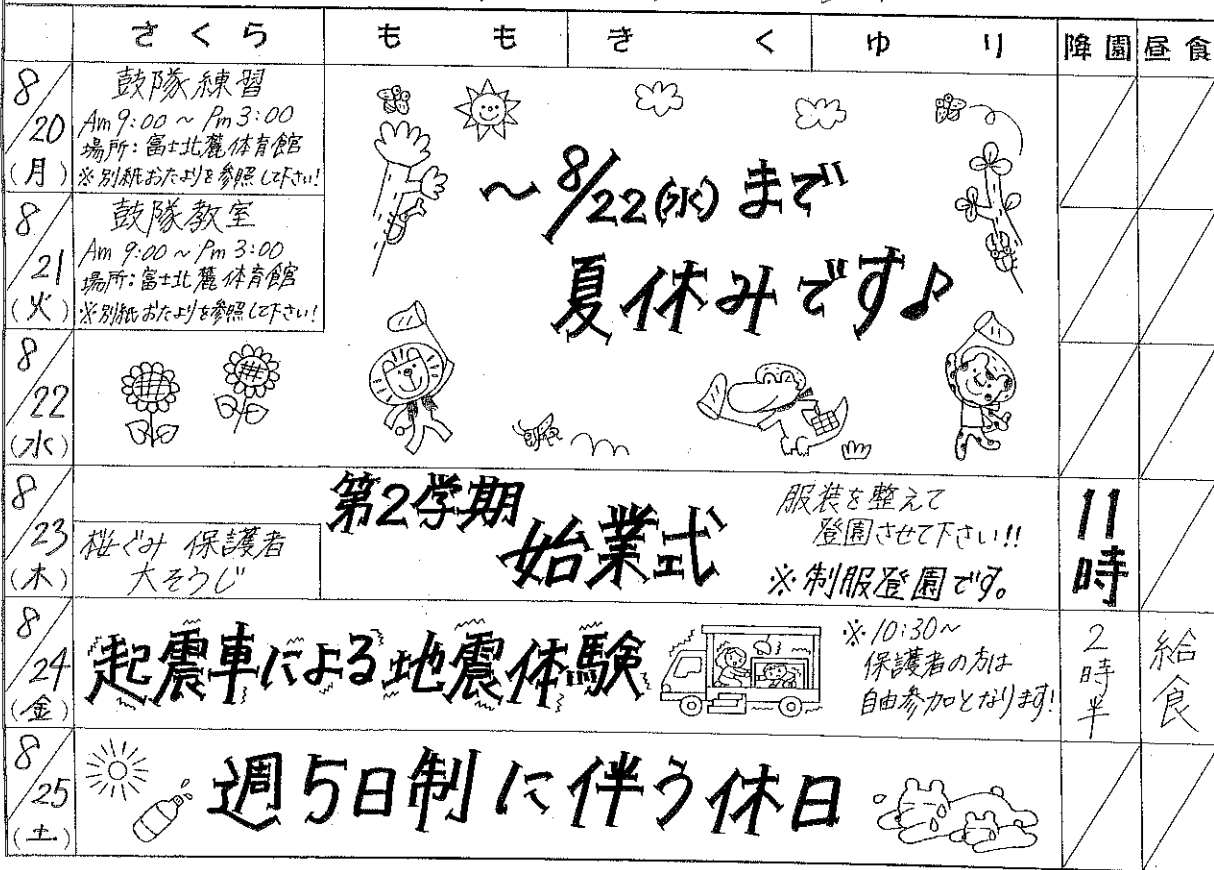 さくら もも きく ゆり 降園 昼食
8/20(月)
鼓隊練習
Am 9:00 ~ Pm 3:00
場所:富士北麓体育館
※別紙おたよりを参照して下さい!
8/21(火)
鼓隊教室
Am 9:00 ~ Pm 3:00
場所:富士北麓体育館
※別紙おたよりを参照して下さい!
8/22(水)
~8/22(水)まで
夏休みです♪
8/23(木)
桜ぐみ 保護者
大そうじ
第2学期
始業式
服装を整えて
登園させて下さい!!
※制服登園です。
11時
8/24(金)
起震車による地震体験
※10:30~
保護者の方は
自由参加となります!
2時半
給食
8/25(土)
週5日制に伴う休日